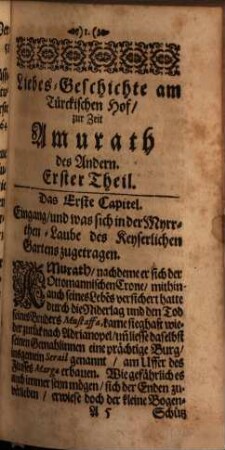 1.
Liebes-Geschichte am
Türckischen Hof/
zur Zeit
Amurath
des Andern.
Erster Theil.
Das Erste Capitel.
Eingang/und was sich in der Myrr-
then-Laube des Keyserlichen
Gartens zugetragen.
AMurath/ nachdeme er sich der
Ottomannischen Crone/ mithin
auch seines Lebēs versichert hatte
durch die Niderlag und den Tod
seines Bruders Mustaffa, kame sieghafft wie-
der zurück nach Adrianopel/ uñ liesse daselbst
seinen Gemahlinnen eine prächtige Burg/
insgemein Serail genannt/ am Uffer des
Flusses Marga erbauen. Wie gefährlich es
auch immer seyn mögen/ sich der Enden zu
verlieben/ erwiese doch der kleine Bogen-
A 5 Schütz